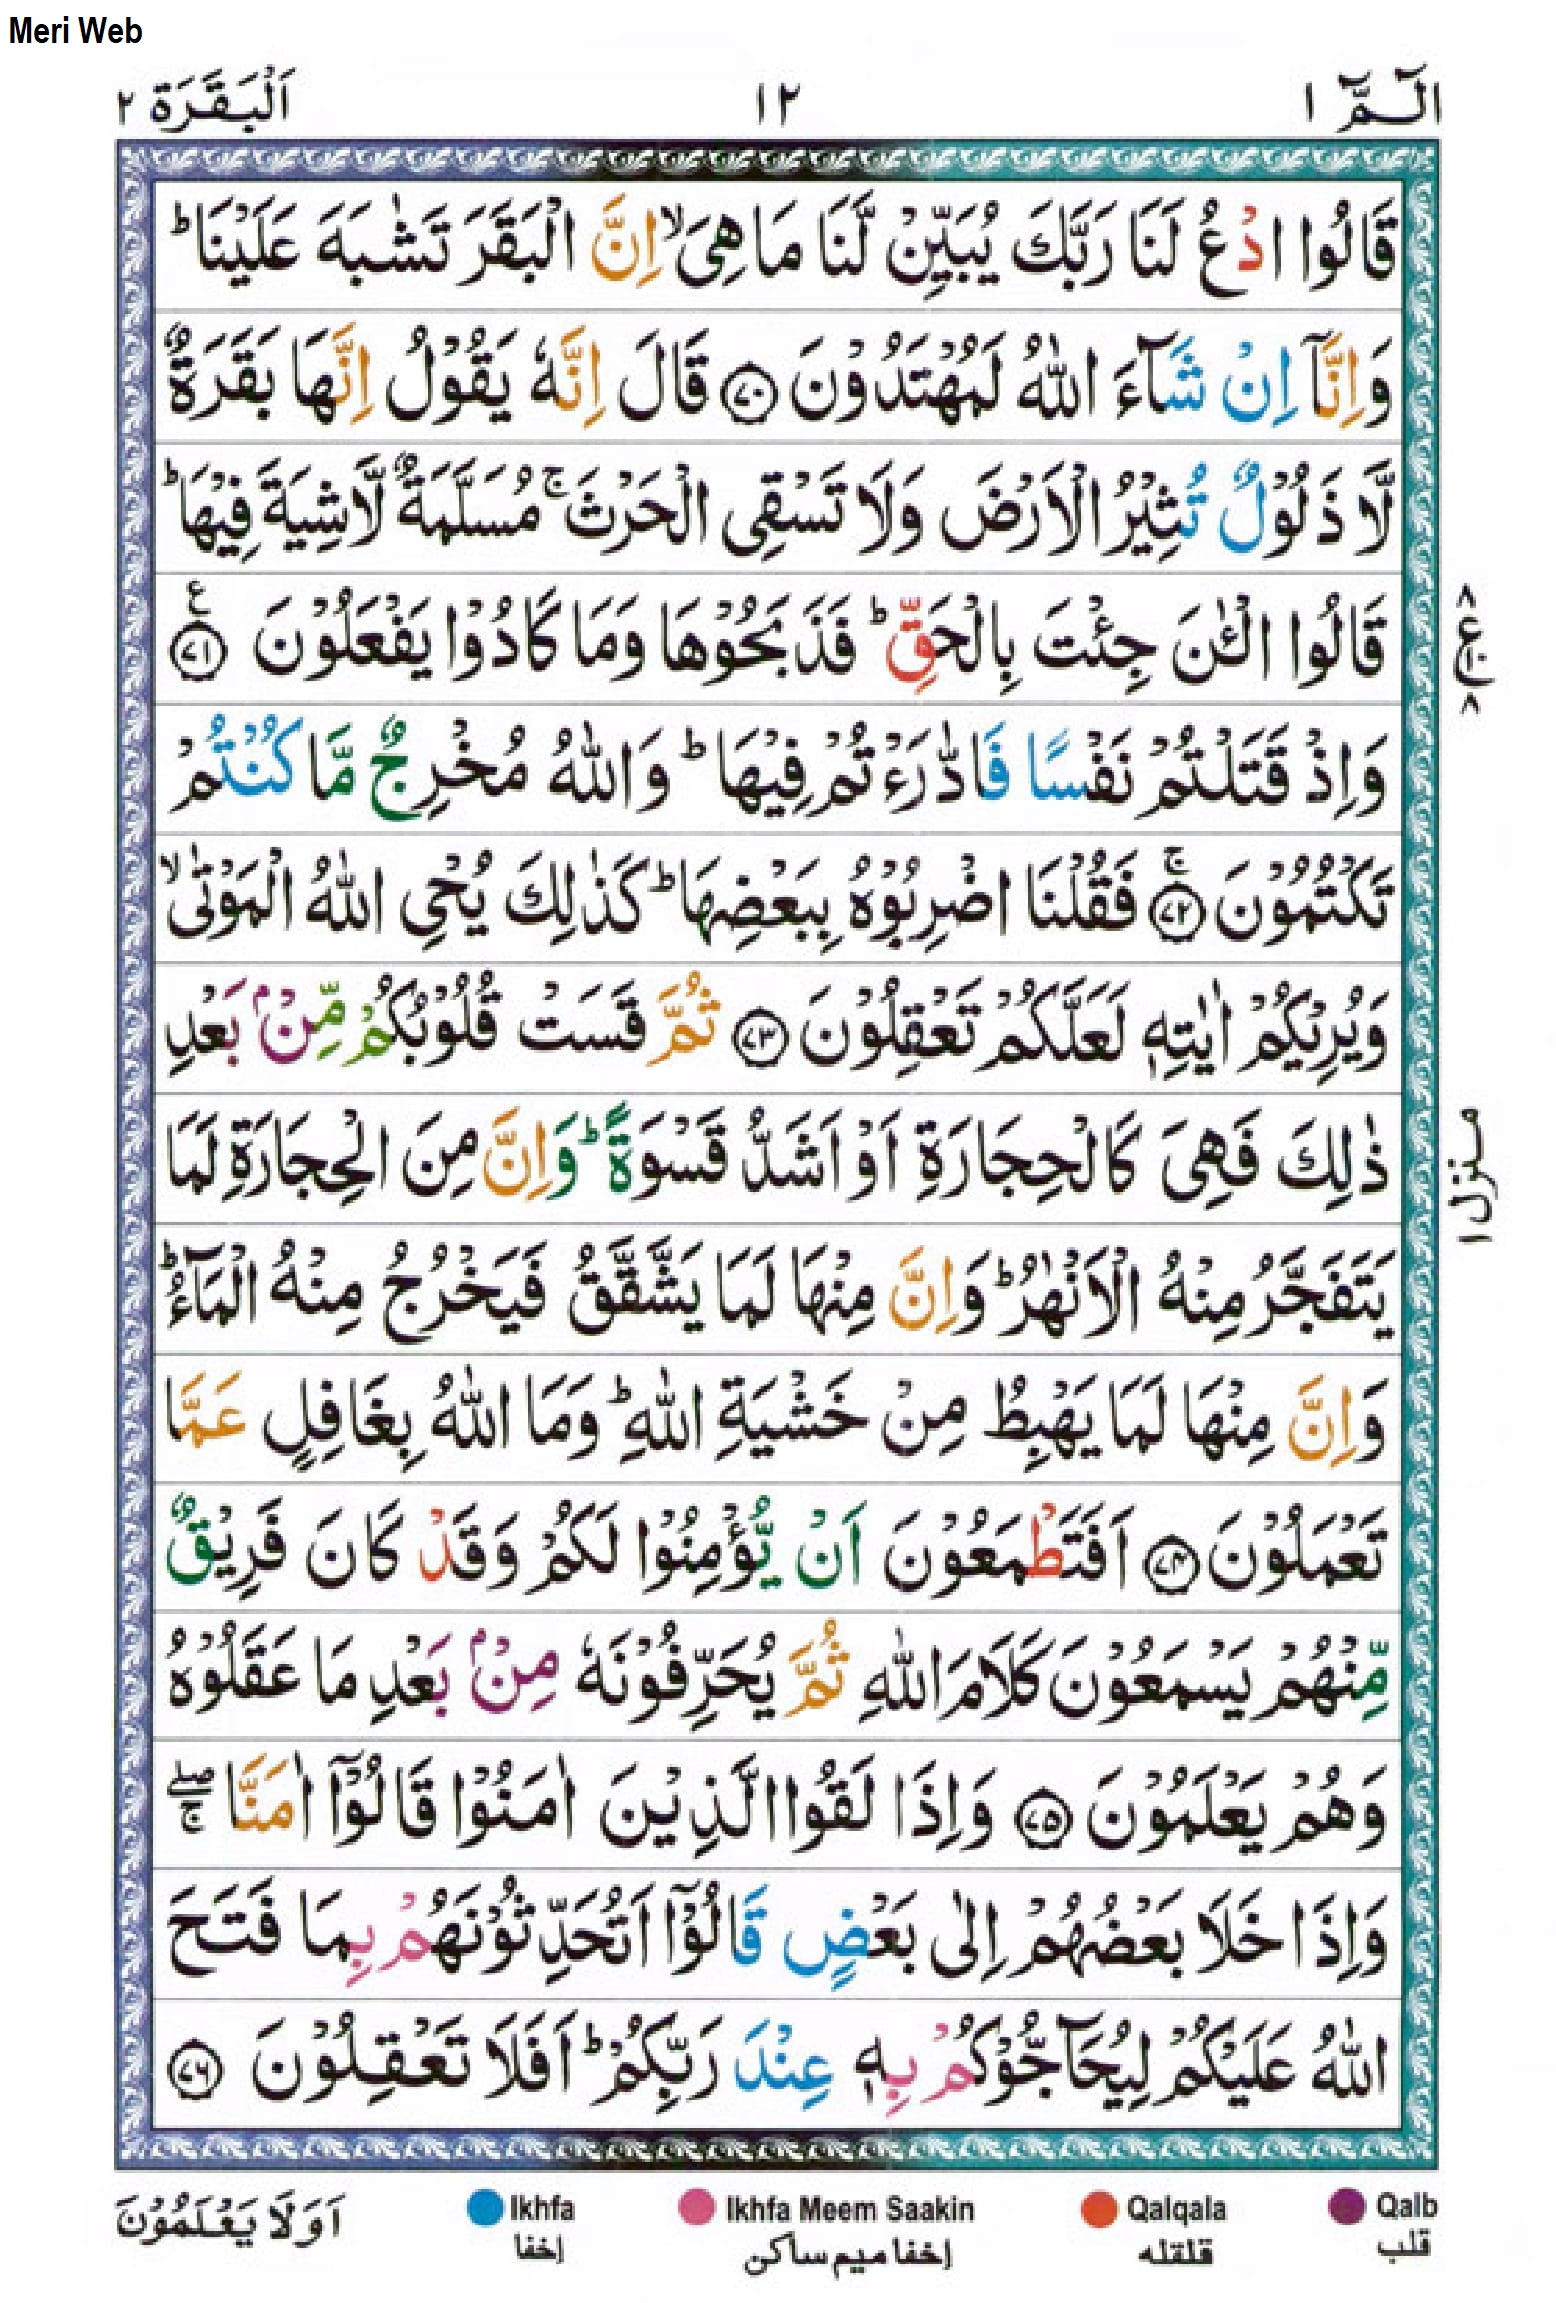 Meri Web
الٓـمّٓ ١
١٢
اَلْبَقَرَة ٢
قَالُوا ادْعُ لَنَا رَبَّكَ يُبَيِّنْ لَّنَا مَا هِىَ ۙ اِنَّ الْبَقَرَ تَشٰبَهَ عَلَيْنَا ؕ
وَاِنَّاۤ اِنْ شَآءَ اللّٰهُ لَمُهْتَدُوْنَ ﴿۷۰﴾ قَالَ اِنَّهٗ يَقُوْلُ اِنَّهَا بَقَرَةٌ
لَّا ذَلُوْلٌ تُثِيْرُ الْاَرْضَ وَلَا تَسْقِى الْحَرْثَ ۚ مُسَلَّمَةٌ لَّاشِيَةَ فِيْهَا ؕ
قَالُوا الْـٰٔنَ جِئْتَ بِالْحَقِّ ؕ فَذَبَحُوْهَا وَمَا كَادُوْا يَفْعَلُوْنَ ﴿۷۱﴾ ع
وَاِذْ قَتَلْتُمْ نَفْسًا فَادّٰرَءْتُمْ فِيْهَا ؕ وَاللّٰهُ مُخْرِجٌ مَّا كُنْتُمْ
تَكْتُمُوْنَ ﴿۷۲﴾ ۚ فَقُلْنَا اضْرِبُوْهُ بِبَعْضِهَا ؕ كَذٰلِكَ يُحْىِ اللّٰهُ الْمَوْتٰى ۙ
وَيُرِيْكُمْ اٰيٰتِهٖ لَعَلَّكُمْ تَعْقِلُوْنَ ﴿۷۳﴾ ثُمَّ قَسَتْ قُلُوْبُكُمْ مِّنْۢ بَعْدِ
ذٰلِكَ فَهِىَ كَالْحِجَارَةِ اَوْ اَشَدُّ قَسْوَةً ؕ وَاِنَّ مِنَ الْحِجَارَةِ لَمَا
يَتَفَجَّرُ مِنْهُ الْاَنْهٰرُ ؕ وَاِنَّ مِنْهَا لَمَا يَشَّقَّقُ فَيَخْرُجُ مِنْهُ الْمَآءُ ؕ
وَاِنَّ مِنْهَا لَمَا يَهْبِطُ مِنْ خَشْيَةِ اللّٰهِ ؕ وَمَا اللّٰهُ بِغَافِلٍ عَمَّا
تَعْمَلُوْنَ ﴿۷۴﴾ اَفَتَطْمَعُوْنَ اَنْ يُّؤْمِنُوْا لَكُمْ وَقَدْ كَانَ فَرِيْقٌ
مِّنْهُمْ يَسْمَعُوْنَ كَلَامَ اللّٰهِ ثُمَّ يُحَرِّفُوْنَهٗ مِنْۢ بَعْدِ مَا عَقَلُوْهُ
وَهُمْ يَعْلَمُوْنَ ﴿۷۵﴾ وَاِذَا لَقُوا الَّذِيْنَ اٰمَنُوْا قَالُوْۤا اٰمَنَّا ۖۚ
وَاِذَا خَلَا بَعْضُهُمْ اِلٰى بَعْضٍ قَالُوْۤا اَتُحَدِّثُوْنَهُمْ بِمَا فَتَحَ
اللّٰهُ عَلَيْكُمْ لِيُحَآجُّوْكُمْ بِهٖ عِنْدَ رَبِّكُمْ ؕ اَفَلَا تَعْقِلُوْنَ ﴿۷۶﴾
منزل ١
اَوَلَا يَعْلَمُوْنَ
Ikhfa
إخفا
Ikhfa Meem Saakin
إخفا ميم ساكن
Qalqala
قلقله
Qalb
قلب